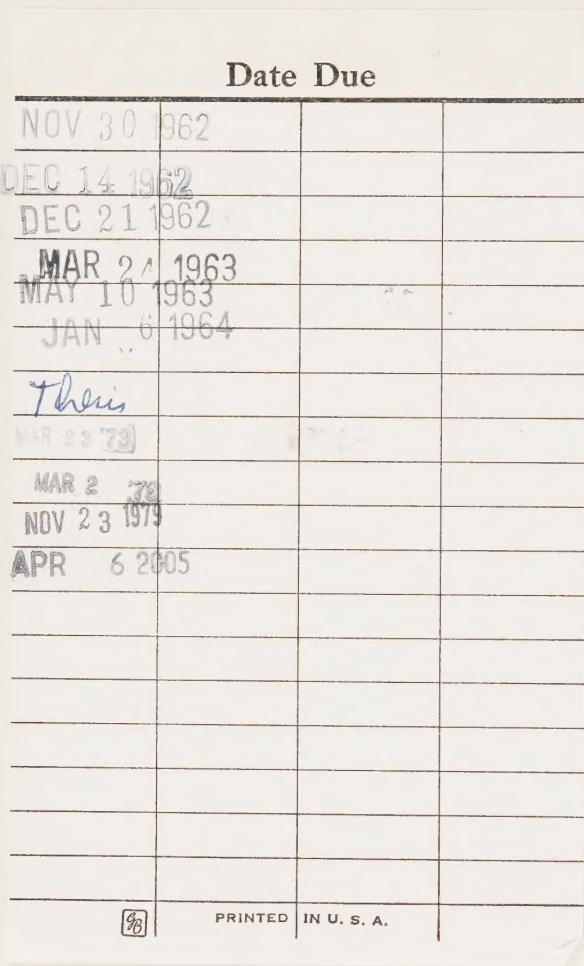 Date Due
NOV 30 1962
DEC 14 1962
DEC 21 1962
MAR 1963
MAY 10 1963
JAN 6 1964
Thesis
MAR 23 '73
MAR 2
NOV 23 1979
APR 6 2005
GB PRINTED IN U. S. A.